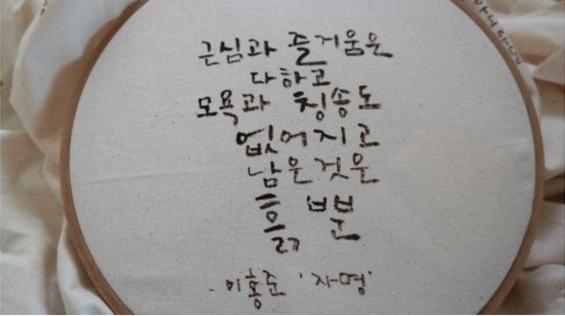 근심과 즐거움은
다하고
모욕과 칭송도
없어지고
남은것은
흙 뿐
- 이홍준 '자명'